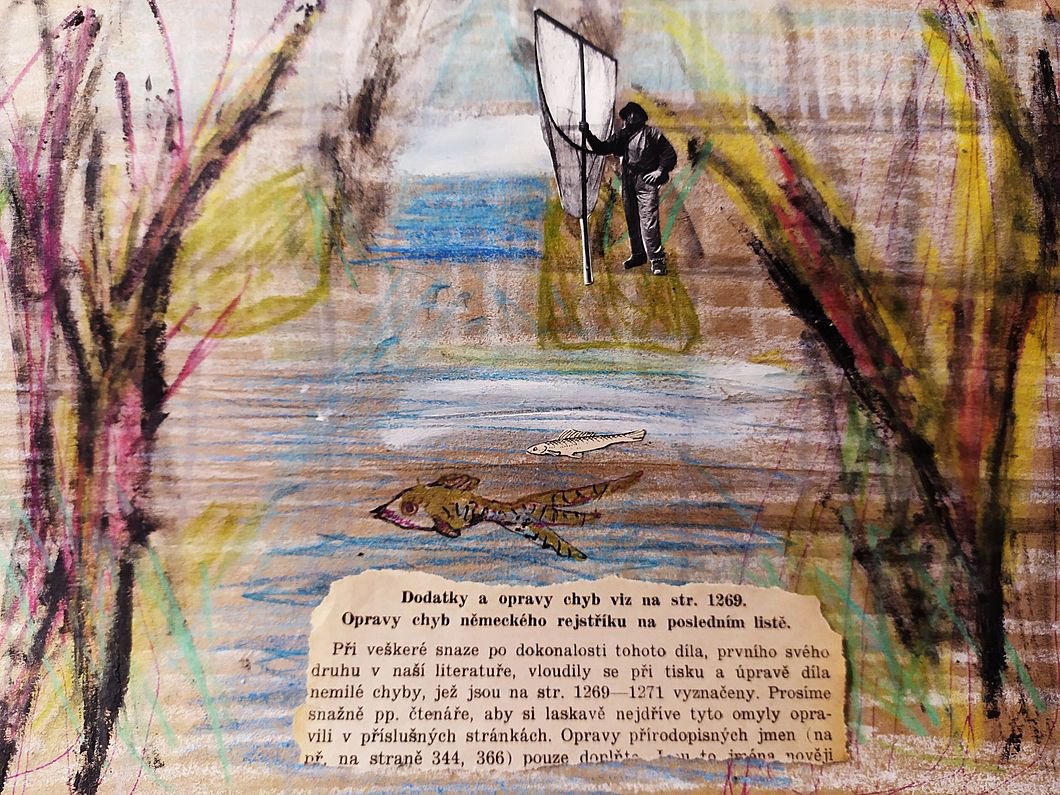 Dodatky a opravy chyb viz na str. 1269.
Opravy chyb německého rejstříku na posledním listě.
Při veškeré snaze po dokonalosti tohoto díla, prvního svého
druhu v naší literatuře, vloudily se při tisku a úpravě díla
nemilé chyby, jež jsou na str. 1269—1271 vyznačeny. Prosíme
snažně pp. čtenáře, aby si laskavě nejdříve tyto omyly opra-
vili v příslušných stránkách. Opravy přírodopisných jmen (na
př. na straně 344, 366) pouze doplňte. Jsou to jména nověji